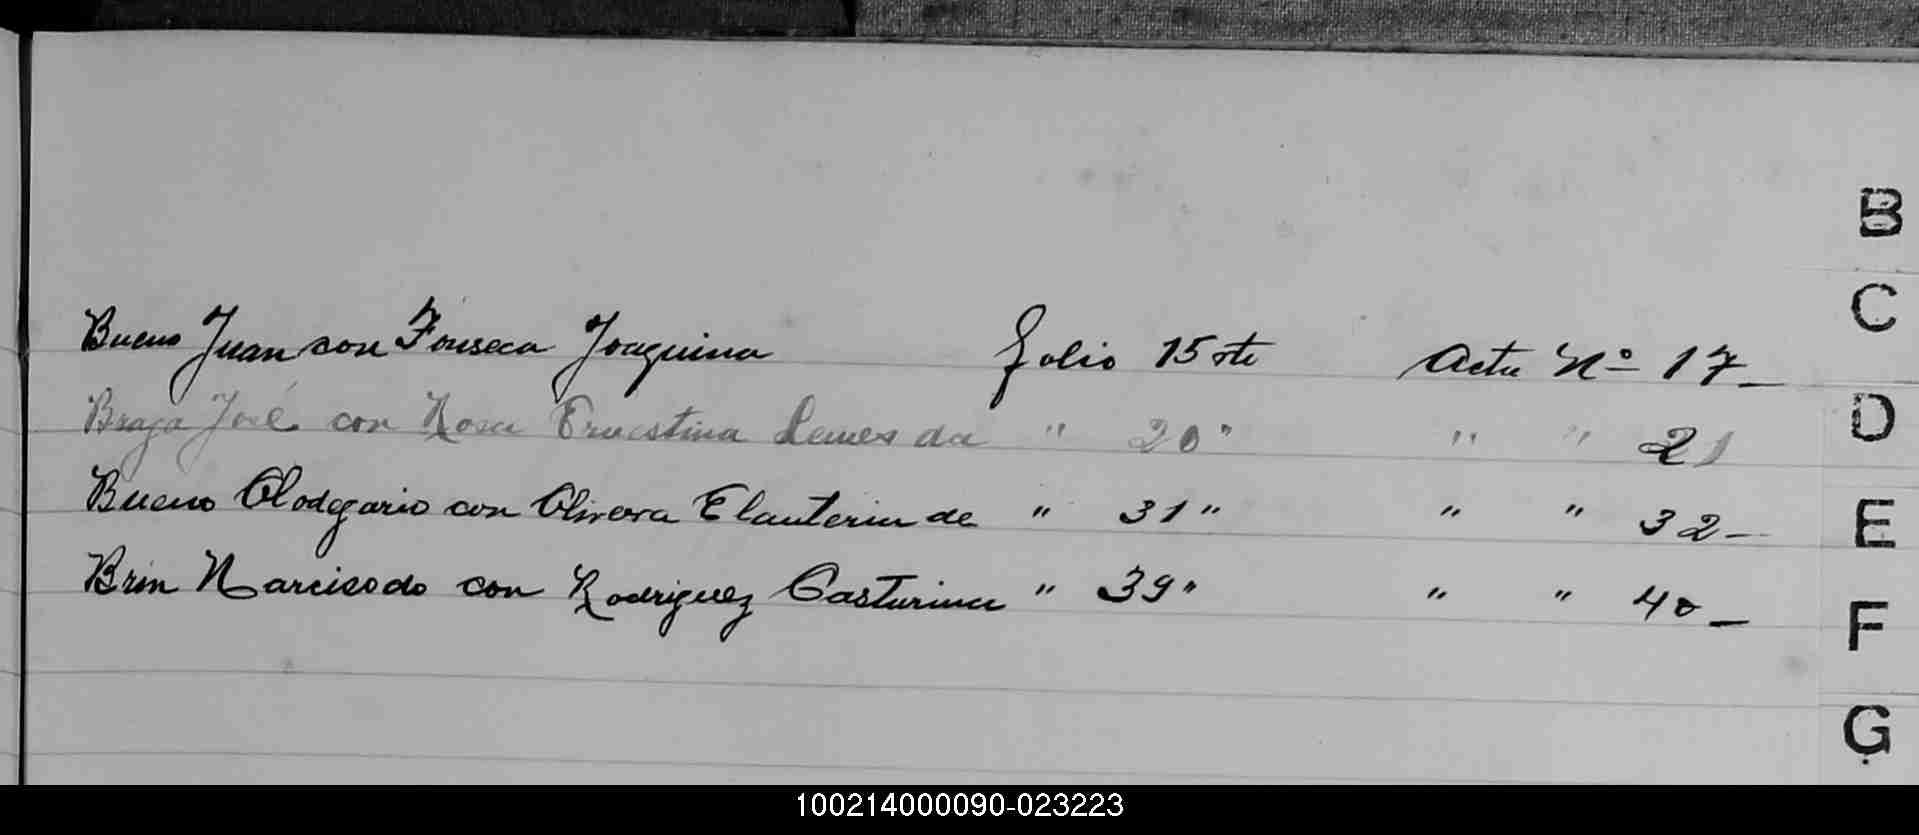 Bueno Juan con Fonseca Joaquina folio 15 vto Acta Nº 17
Braga José con Rosa Ernestina Lemes da " 20 " " " 21
Bueno Clodegario con Olivera Elauteria de " 31 " " " 32
Brin Narciso do con Rodriguez Casturina " 39 " " " 40
B
C
D
E
F
G
100214000090-023223